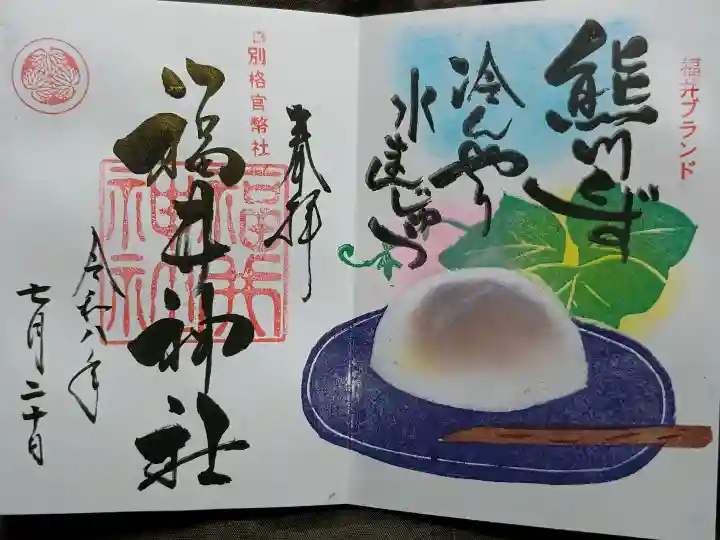 福井ブランド
熊川くず
冷んやり
水まんじゅう
奉拝
別格官幣社
福井神社
福井神社
令和八年
七月二十日